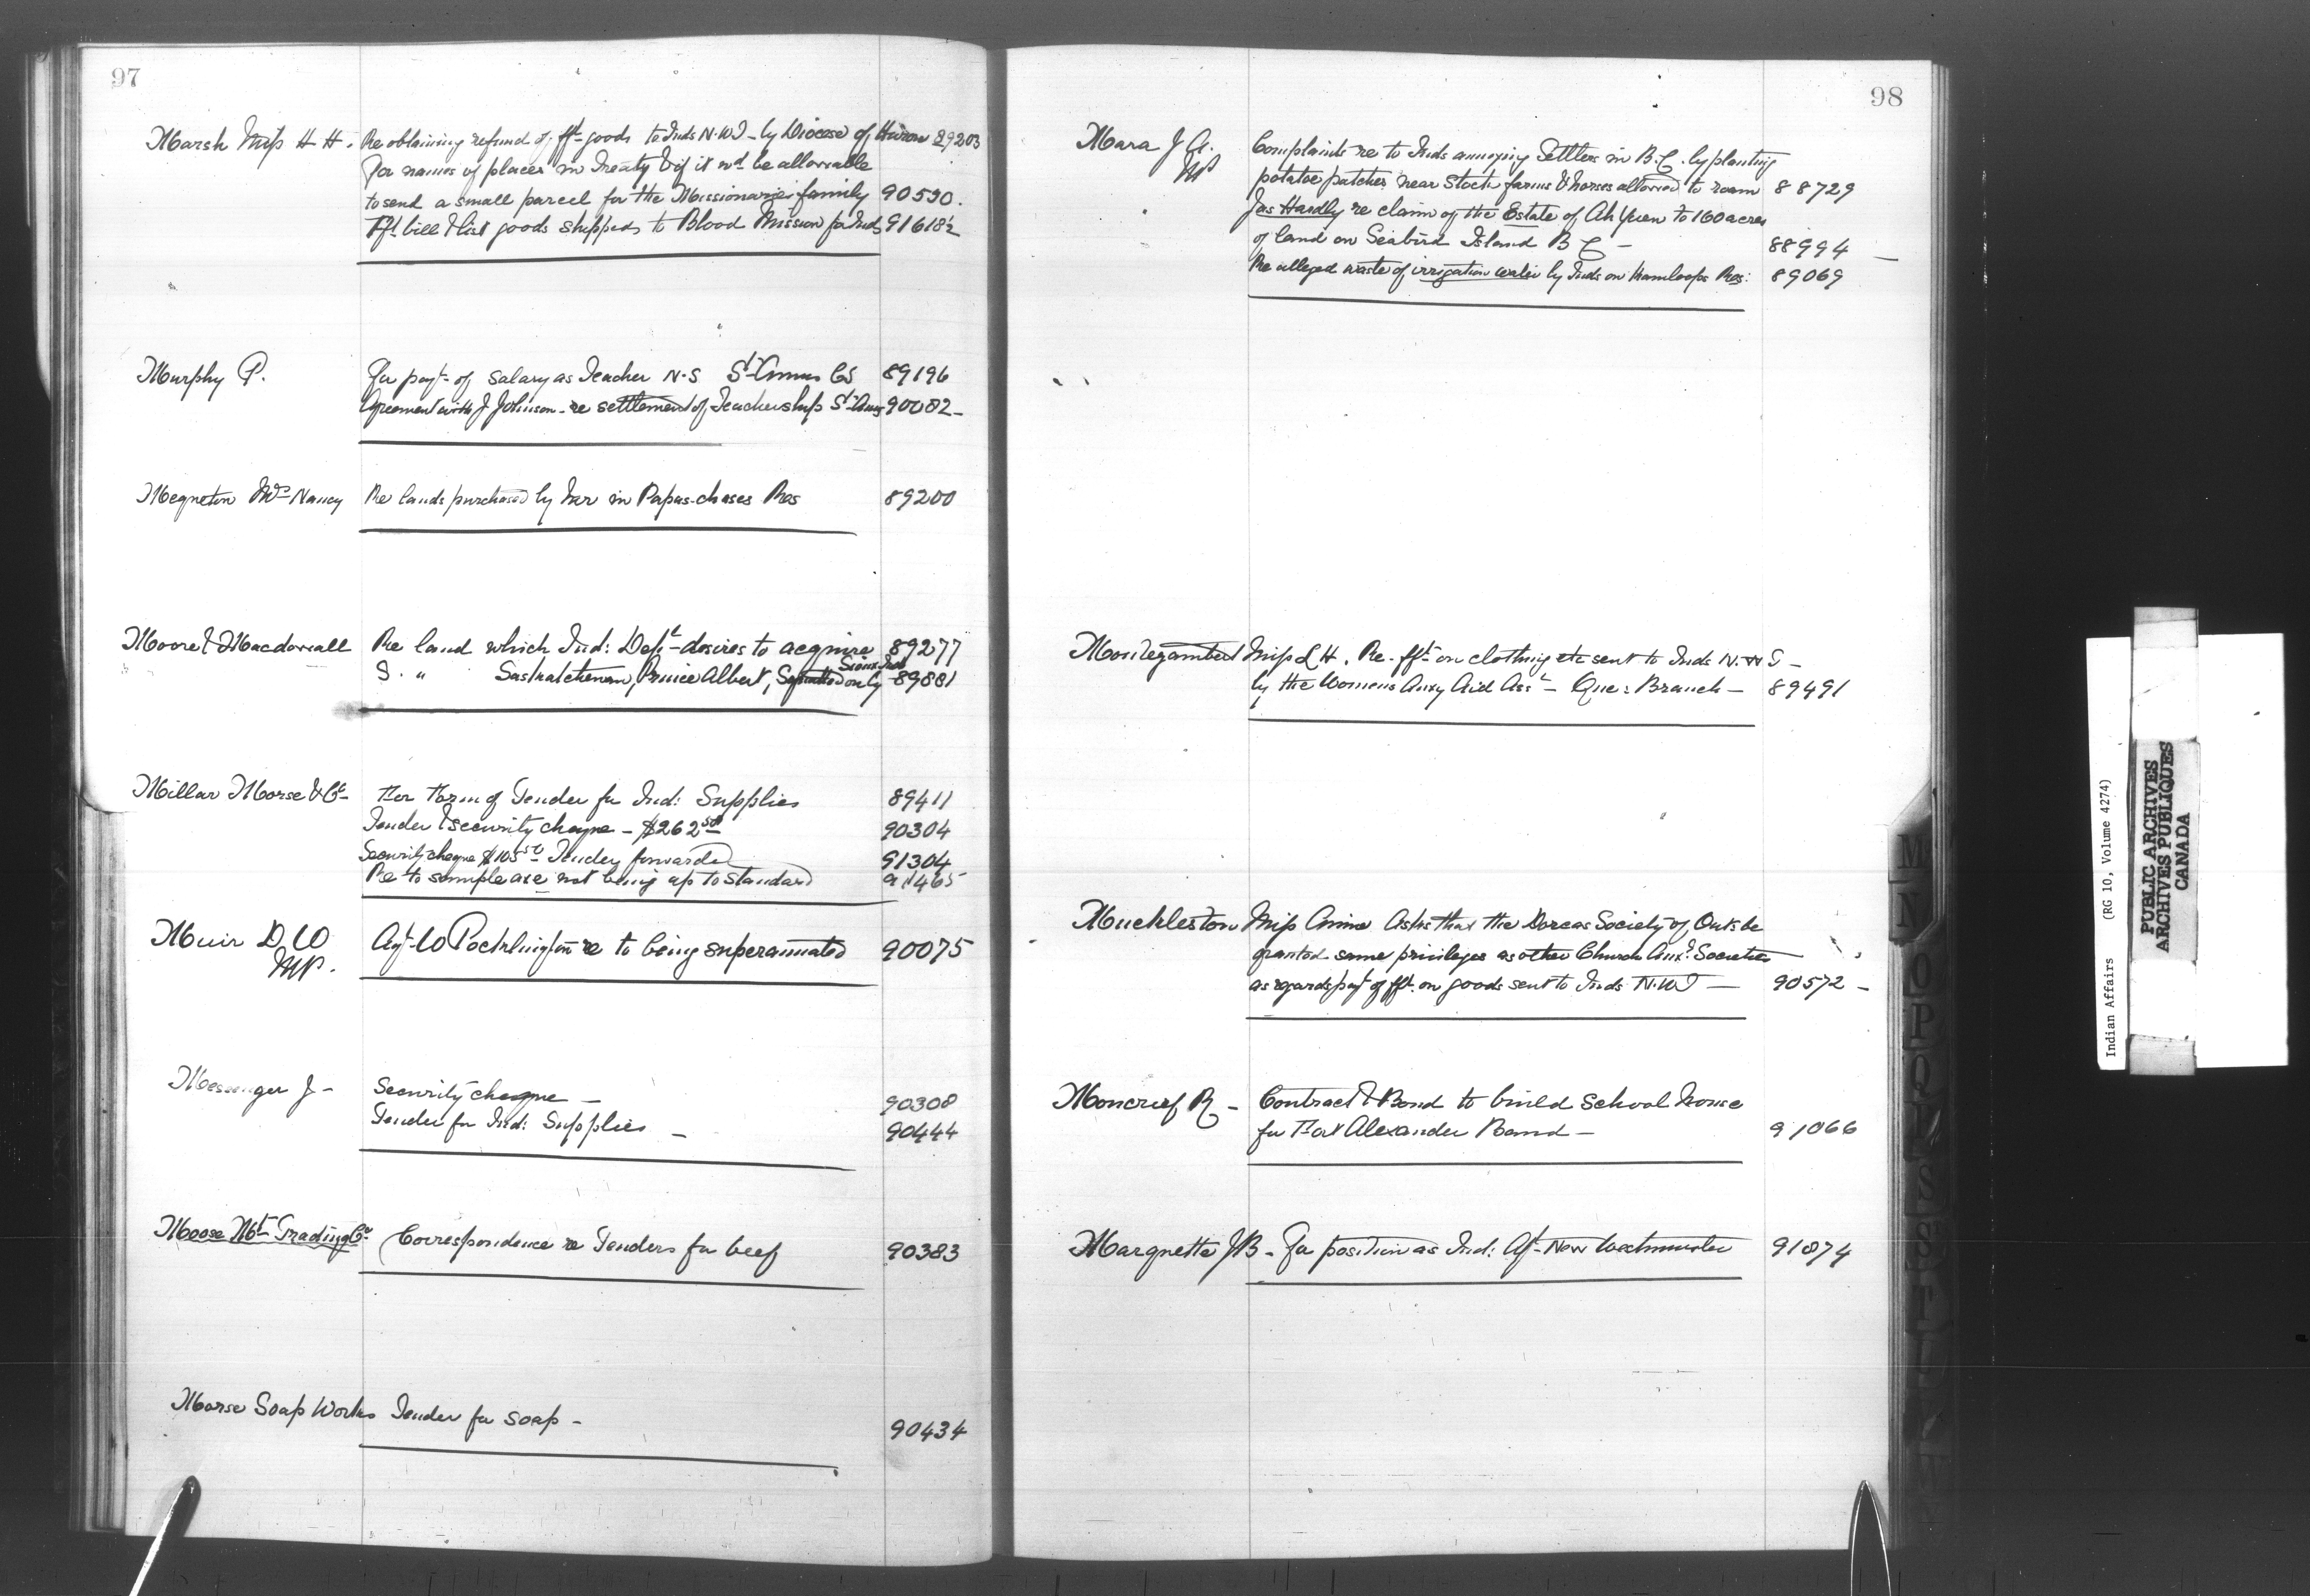 97
Marsh Miss H H. Re obtaining refund of fft goods to Inds N.W.T - by Diocese of Huron 89203
For names of places in Treaty & if it wd be allowable
to send a small parcel for the Missionaries family 90530.
Fft bill & list goods shipped to Blood Mission for Inds 91618½
Murphy P. For payt of salary as Teacher N.S St Annes CS 89196
Agreement with J Johnson re settlement of Teachership St Anns 90082 -
Mrs Nancy Re lands purchased by her in Papas-chases Res 89200
Moore & Macdowall Re land which Ind: Dept desires to acquire 89277
S. " Saskatchewan, Prince Albert, Squatted on by Sioux Inds 89881
Millar Morse & Co For Form of Tender for Ind: Supplies 89411
Tender & security cheque - $262 50 90304
Security cheque $105 50 Tender forwarded 91304
Re to sample axe not being up to standard 91465
Muir D W Agt W Pocklington re to being superannuated 90075
MP.
Messenger J - Security cheque - 90308
Tender for Ind: Supplies - 90444
Moose Mt Trading Co Correspondence re Tenders for beef 90383
Morse Soap Works Tender for soap - 90434
98
Mara J A. Complaints re to Inds annoying Settlers in B.C. by planting
MP potatoe patches near Stock farms & horses allowed to roam 88729
Jas Hardly re claim of the Estate of Ah Yuen to 160 acres
of land on Seabird Island B C - 88994 -
Re alleged waste of irrigation water by Inds on Kamloops Res: 89069
Montizambert Miss L H. Re fft on clothing etc sent to Inds N.W T -
by the Womens Auxy Aid Asst - Que: Branch - 89491
Muckleston Miss Annie Asks that the Dorcas Society of Onts be
granted same privileges as other Church Aux: Societies
as regards payt of fft on goods sent to Inds N.W.T - 90572 -
Moncrief R - Contract & Bond to build School house
for Fort Alexander Band - 91066
Marquette J B - For position as Ind: Agt New Westminster 91874
M
N
O
P
Q
R
S
T
U
Indian Affairs (RG 10, Volume 4274)
PUBLIC ARCHIVES
ARCHIVES PUBLIQUES
CANADA